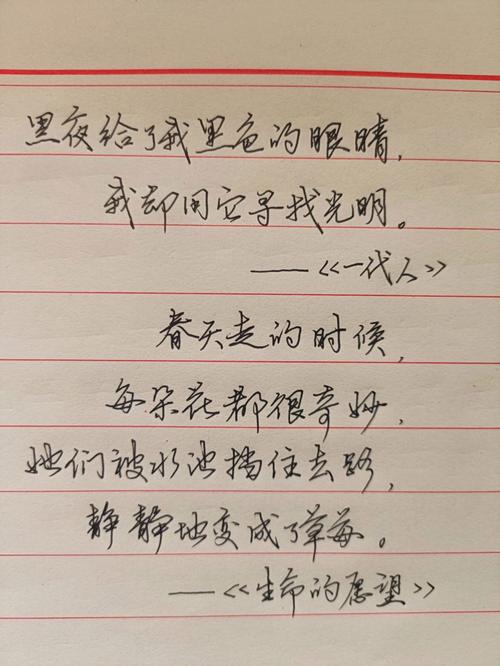 黑夜给了我黑色的眼睛，
我却用它寻找光明。
——《一代人》
春天走的时候，
每朵花都很奇妙，
她们被水池挡住去路，
静静地变成了草莓。
——《生命的愿望》